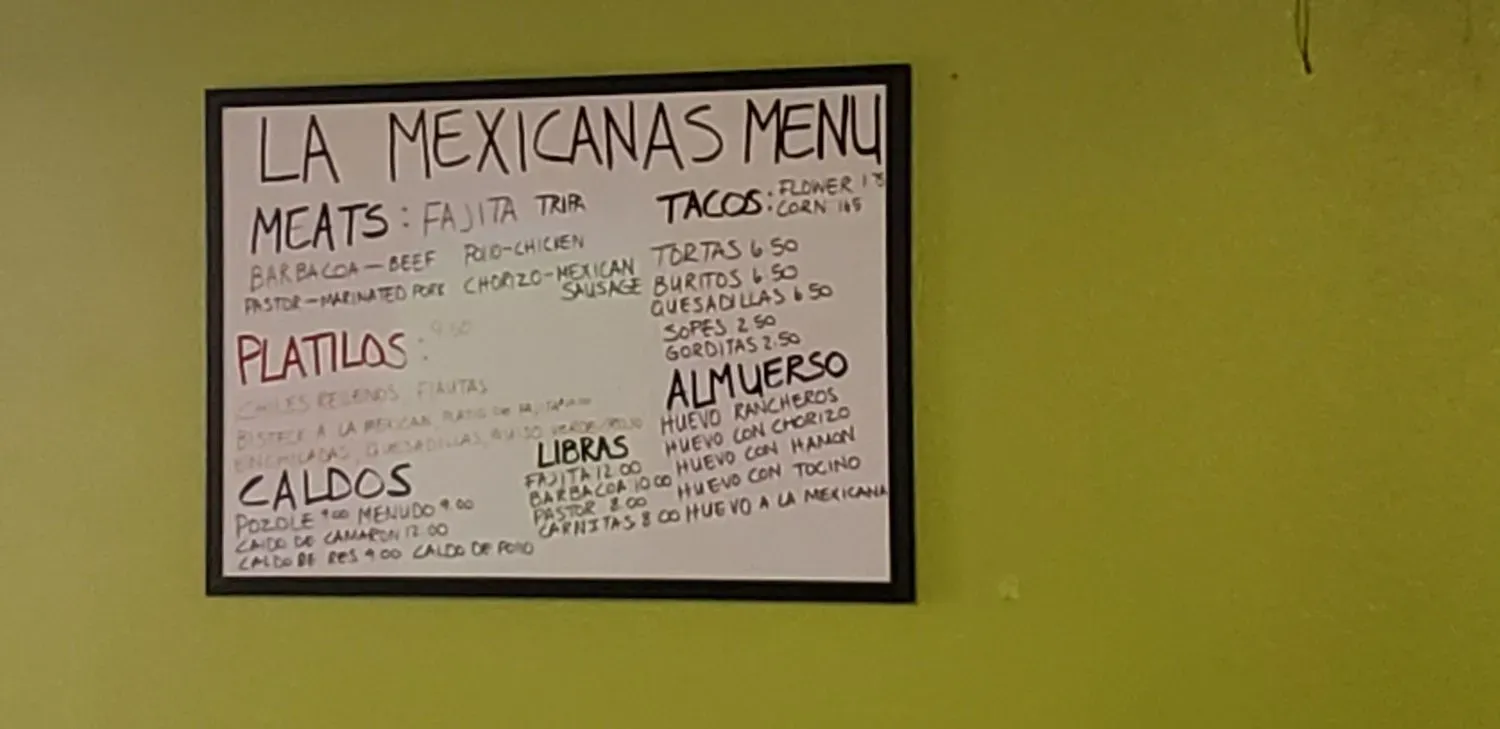 LA MEXICANAS MENU
MEATS: FAJITA TRIPA
BARBACOA-BEEF POLLO-CHICKEN
PASTOR-MARINATED PORK CHORIZO-MEXICAN SAUSAGE
PLATILOS: 9.50
CHILES RELLENOS, FLAUTAS
BISTECK A LA MEXICAN, PLATO DE FAJITA
ENCHILADAS, QUESADILLAS, GUISO VERDE/ROJO
CALDOS
POZOLE 9.00 MENUDO 9.00
CALDO DE CAMARON 12.00
CALDO DE RES 9.00 CALDO DE POLLO
LIBRAS
FAJITA 12.00
BARBACOA 10.00
PASTOR 8.00
CARNITAS 8.00
TACOS: FLOWER 1.75
CORN 1.65
TORTAS 6.50
BURITOS 6.50
QUESADILLAS 6.50
SOPES 2.50
GORDITAS 2.50
ALMUERSO
HUEVO RANCHEROS
HUEVO CON CHORIZO
HUEVO CON HAMON
HUEVO CON TOCINO
HUEVO A LA MEXICANA